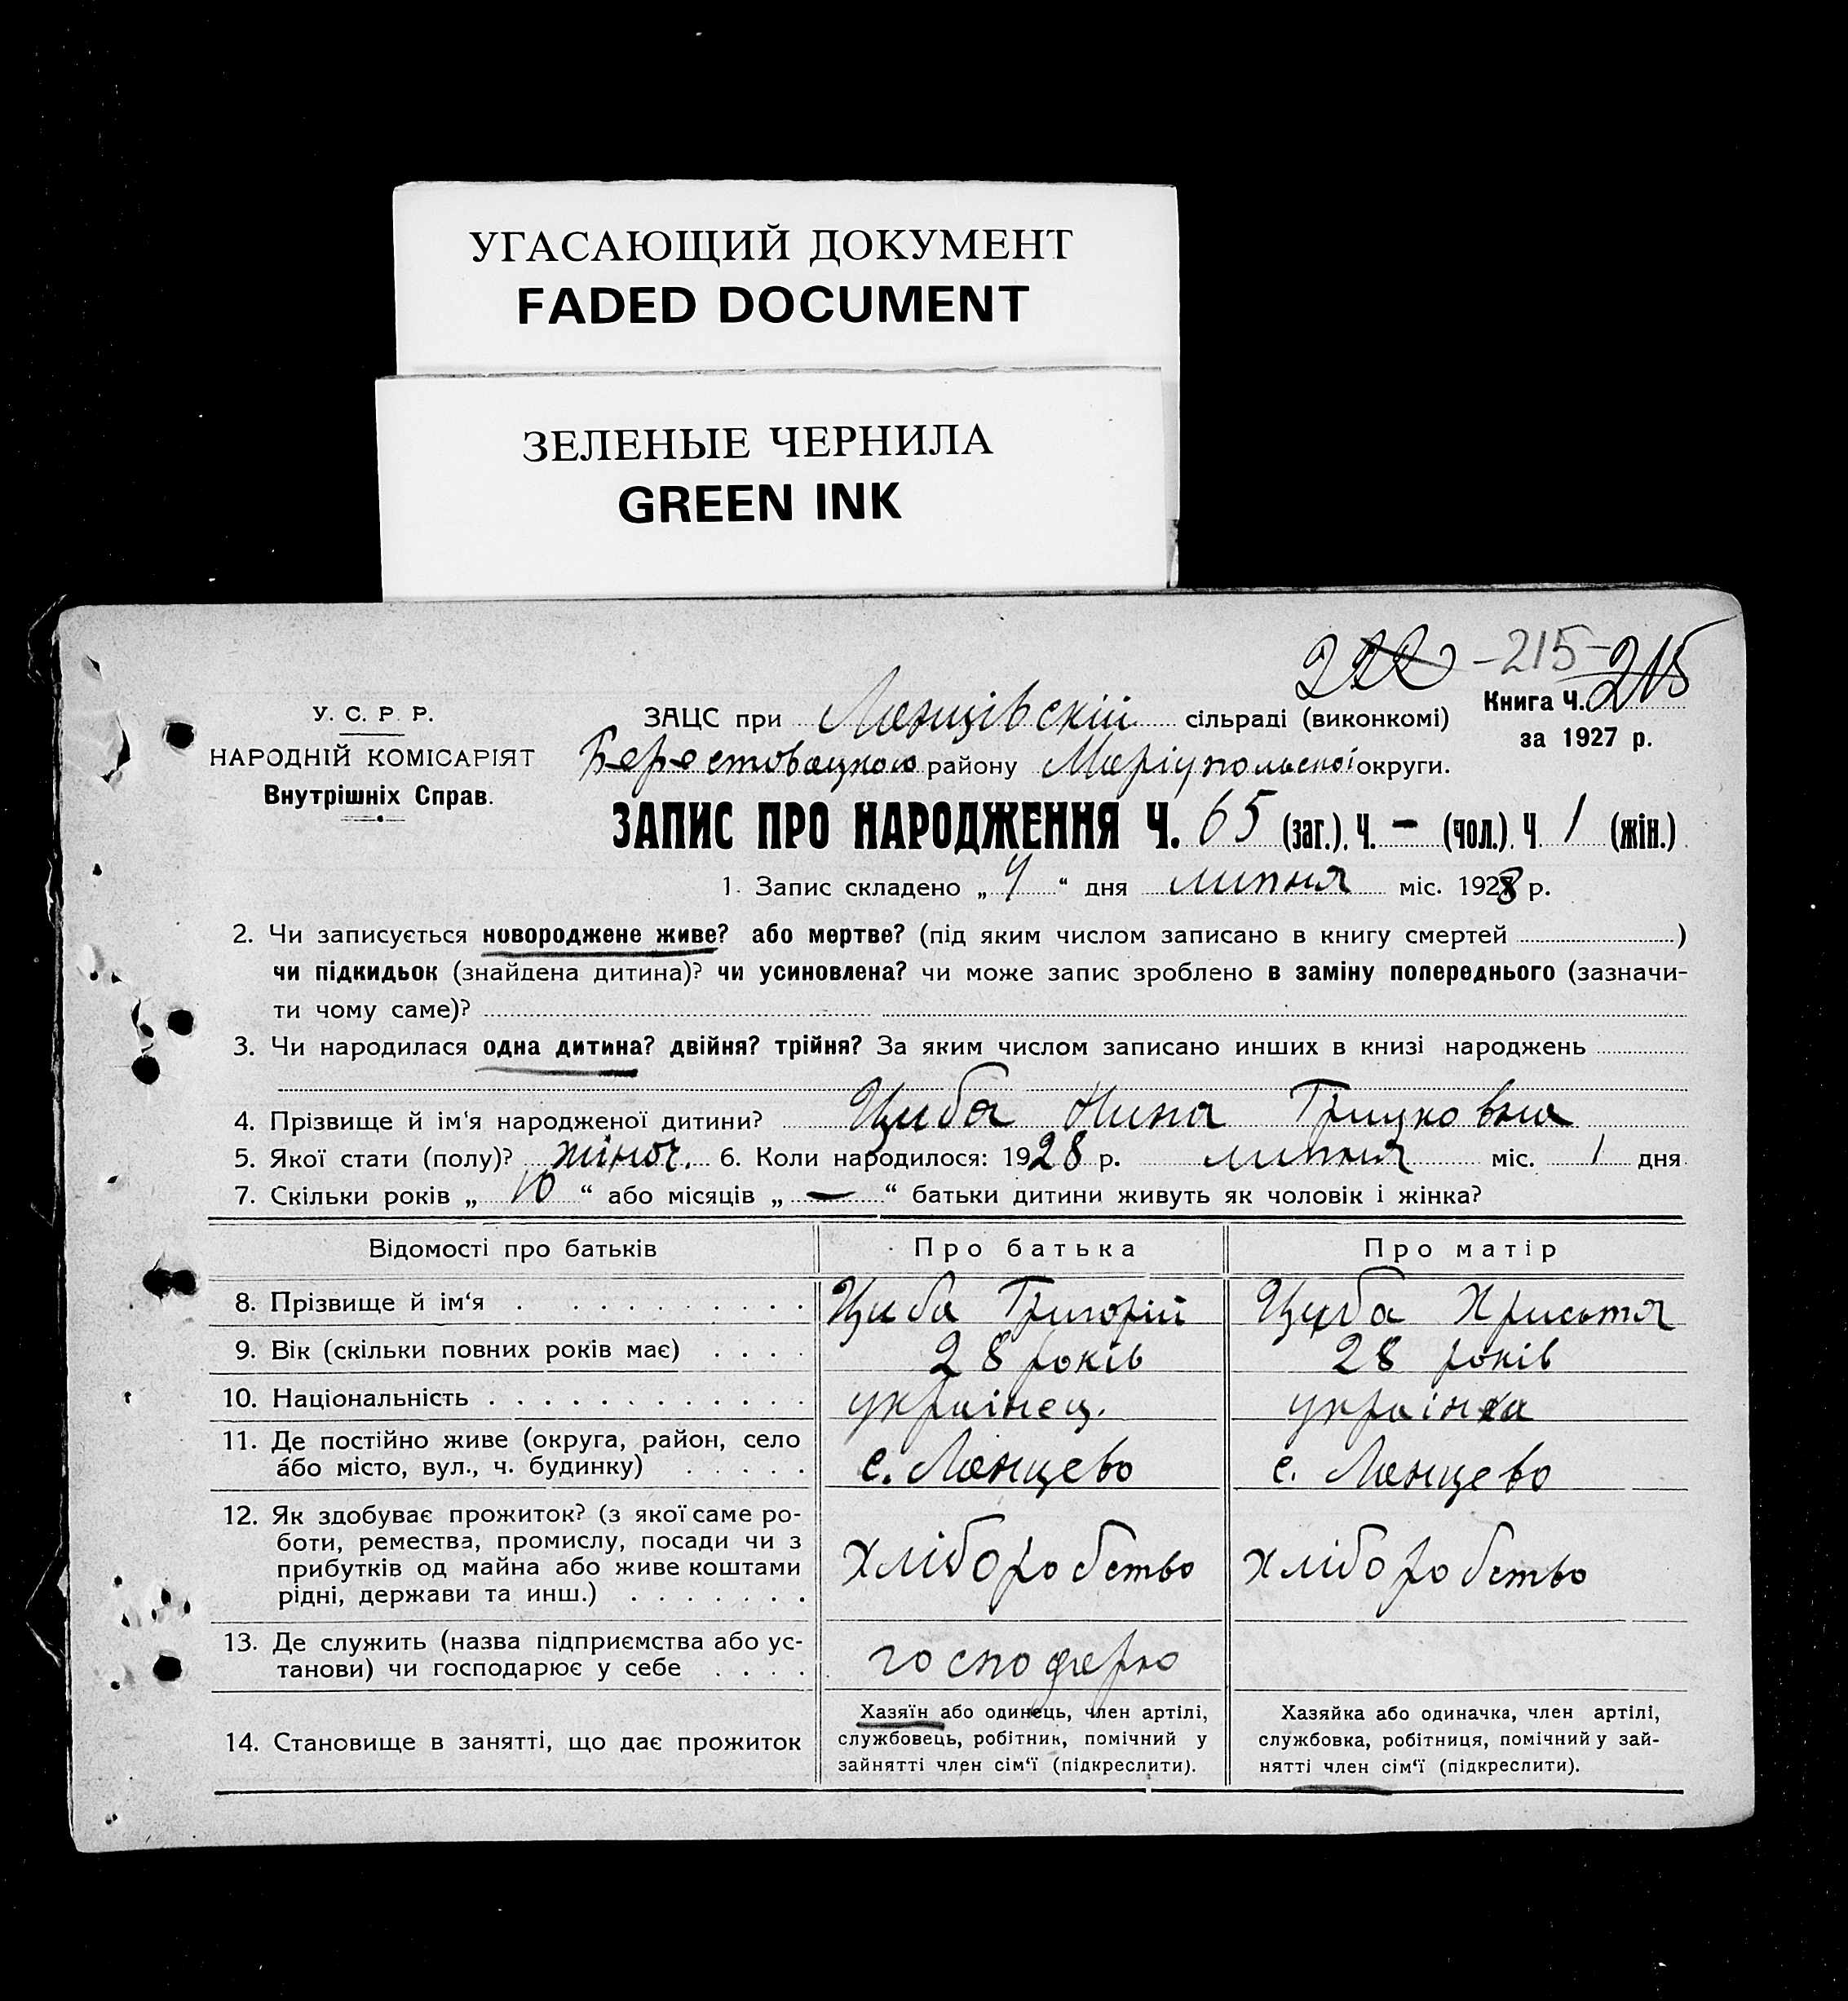 УГАСАЮЩИЙ ДОКУМЕНТ
FADED DOCUMENT
ЗЕЛЕНЫЕ ЧЕРНИЛА
GREEN INK
222 -215- 215
У. С. Р. Р.
НАРОДНІЙ КОМІСАРІЯТ
Внутрішніх Справ.
ЗАЦС при Ланцівскій сільраді (виконкомі)
Книга Ч.
за 1927 р.
Берестовацкого району Маріупольської округи.
ЗАПИС ПРО НАРОДЖЕННЯ Ч. 65 (заг.). Ч. — (чол.). Ч. 1 (жін.)
1. Запис складено „ 4 “ дня липня міс. 1928 р.
2. Чи записується новороджене живе? або мертве? (під яким числом записано в книгу смертей )
чи підкидьок (знайдена дитина)? чи усиновлена? чи може запис зроблено в заміну попереднього (зазначи-
ти чому саме)?
3. Чи народилася одна дитина? двійня? трійня? За яким числом записано инших в книзі народжень
4. Прізвище й ім'я народженої дитини? Циба Нина Грицковна
5. Якої стати (полу)? жіноч. 6. Коли народилося: 1928 р. липня міс. 1 дня
7. Скільки років „ 10 “ або місяців „ — “ батьки дитини живуть як чоловік і жінка?
Відомості про батьків Про батька Про матір
8. Прізвище й ім'я Циба Григорій Циба Христя
9. Вік (скільки повних років має) 28 років 28 років
10. Національність українец. українка
11. Де постійно живе (округа, район, село
або місто, вул., ч. будинку) с. Ланцево с. Ланцево
12. Як здобуває прожиток? (з якої саме ро-
боти, ремества, промислу, посади чи з
прибутків од майна або живе коштами
рідні, держави та инш.) хліборобство хліборобство
13. Де служить (назва підприємства або ус-
танови) чи господарює у себе господарю
14. Становище в занятті, що дає прожиток
Хазяїн або одинець, член артілі,
службовець, робітник, помічний у
зайнятті член сім'ї (підкреслити).
Хазяйка або одиначка, член артілі,
службовка, робітниця, помічний у зай-
нятті член сім'ї (підкреслити).